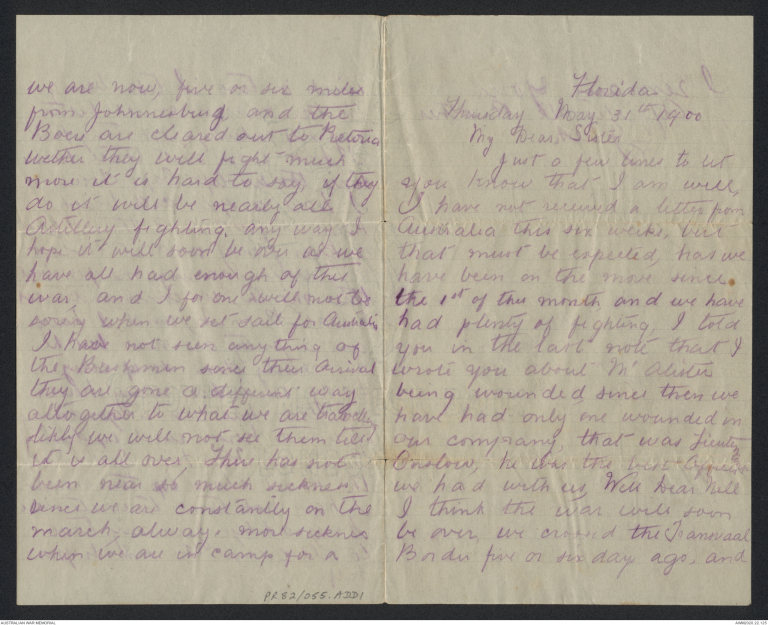 Florida
Thursday May 31st 1900
My Dear Sister
Just a few lines to let
you know that I am well,
I have not received a letter from
Australia this six weeks, but
that must be expected, has we
have been on the move since
the 1st of this month and we have
had plenty of fighting, I told
you in the last note that I
wrote you about Mr Alister
being wounded since then we
have had only one wounded in
our company, that was Lieuten
Onslow, he was the best Officer
we had with us, Well Dear Nell
I think the war will soon
be over, we crossed the Transvaal
Border five or six days ago, and
we are now, five or six miles
from Johannesburg, and the
Boers are cleared out to Pretoria
wether they will fight much
more it is hard to say, if they
do it will be nearly all
Artillery fighting, any way I
hope it will soon be over as we
have all had enough of this
war, and I for one will not be
sorry when we set sail for Australia
I have not seen anything of
the Bushmen since their arrival
they are gone a different way
altogether to what we are
likly we will not see them till
it is all over, There has not
been near so much sickness
since we are constantly on the
march, always more sickness
when we are in camp for a
PR82/055.ADD1
AUSTRALIAN WAR MEMORIAL